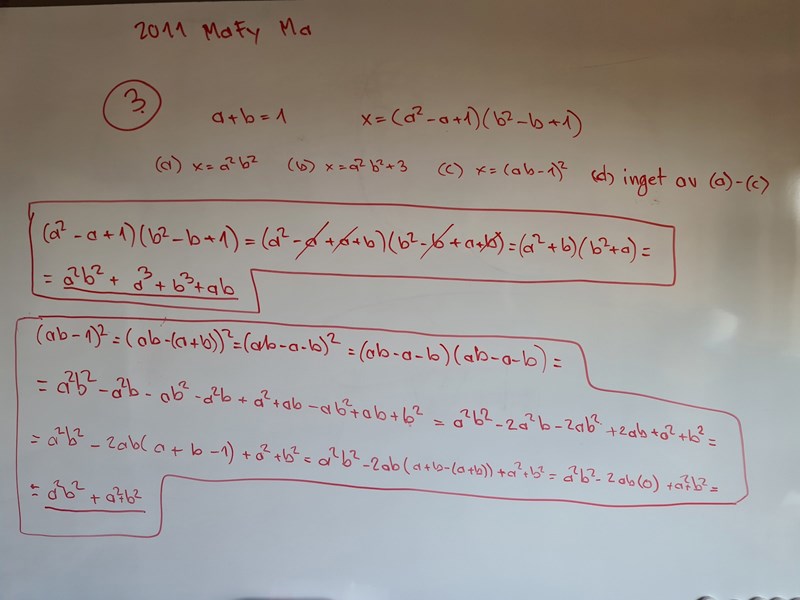 2011 MaFy Ma
3. a+b=1 x=(a²-a+1)(b²-b+1)
(a) x=a²b² (b) x=a²b²+3 (c) x=(ab-1)² (d) inget av (a)-(c)
(a²-a+1)(b²-b+1)=(a²-a+a+b)(b²-b+a+b)=(a²+b)(b²+a)=
=a²b²+a³+b³+ab
(ab-1)²=(ab-(a+b))²=(ab-a-b)²=(ab-a-b)(ab-a-b)=
=a²b²-a²b-ab²-a²b+a²+ab-ab²+ab+b²=a²b²-2a²b-2ab²+2ab+a²+b²=
=a²b²-2ab(a+b-1)+a²+b²=a²b²-2ab(a+b-(a+b))+a²+b²=a²b²-2ab(0)+a²+b²=
=a²b²+a²+b²